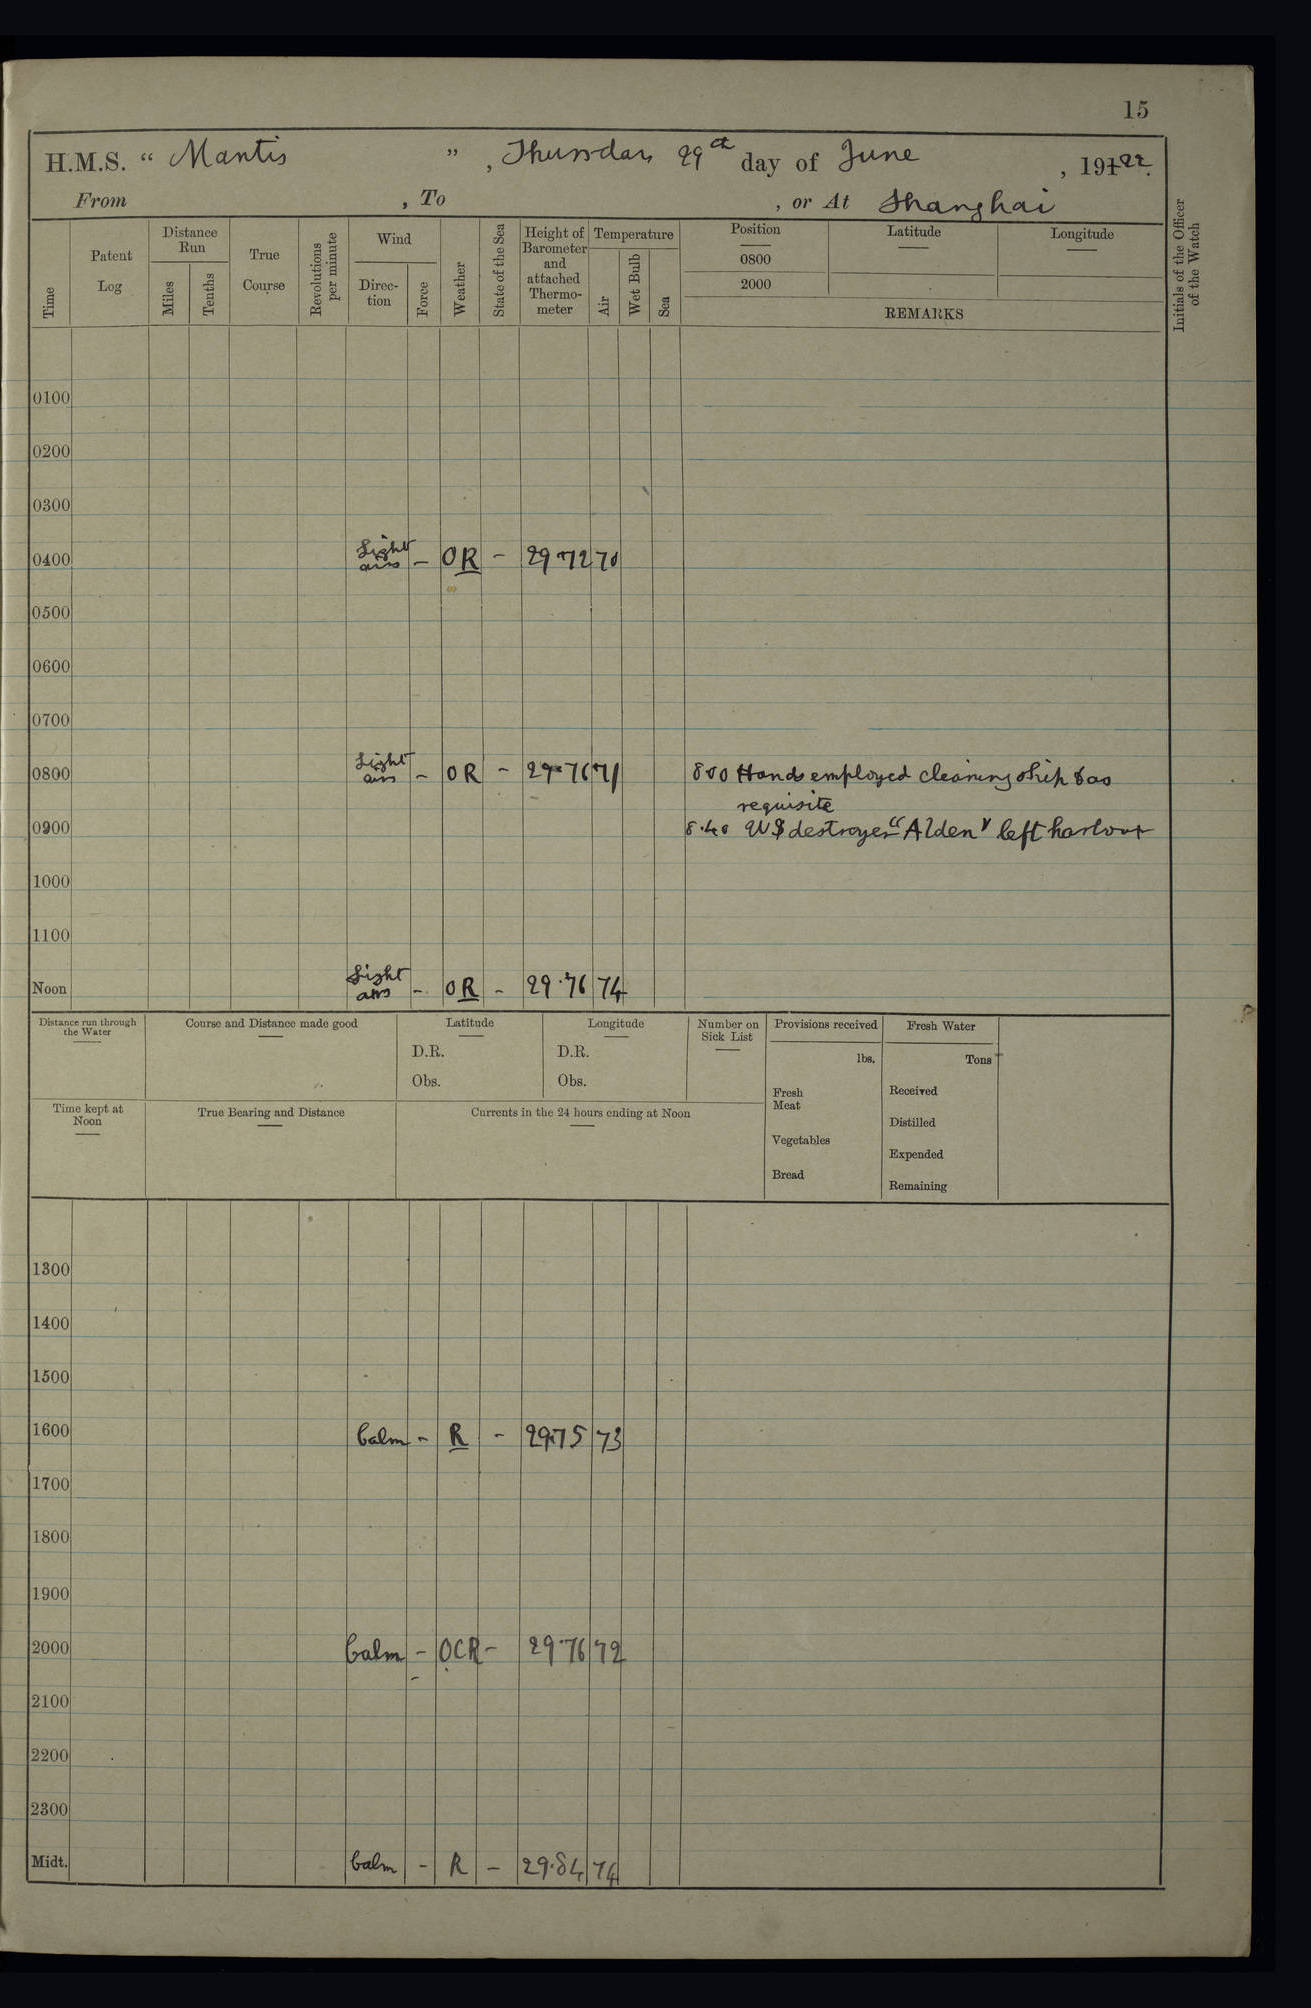 15
H.M.S. “ Mantis ” , Thursday 29th day of June , 191 22.
From , To , or At Shanghai
Time
Patent Log
Distance Run
Miles
Tenths
True Course
Revolutions per minute
Wind
Direc-tion
Force
Weather
State of the Sea
Height of Barometer and attached Thermo-meter
Temperature
Air
Wet Bulb
Sea
Position
0800
2000
Latitude
Longitude
REMARKS
Initials of the Officer of the Watch
0100
0200
0300
0400 Light airs – OR – 29.72 70
0500
0600
0700
0800 Light airs – OR – 29.76 71 800 Hands employed cleaning ship & as
requisite
0900 8.40 US destroyer “Alden” left harbour
1000
1100
Noon Light airs – OR – 29.76 74
Distance run through the Water
Course and Distance made good
Latitude
D.R.
Obs.
Longitude
D.R.
Obs.
Number on Sick List
Provisions received
lbs.
Fresh Meat
Vegetables
Bread
Fresh Water
Tons
Received
Distilled
Expended
Remaining
Time kept at Noon
True Bearing and Distance
Currents in the 24 hours ending at Noon
1300
1400
1500
1600 Calm – R – 29.75 73
1700
1800
1900
2000 Calm – OCR – 29.76 72
2100
2200
2300
Midt. Calm – R – 29.84 74